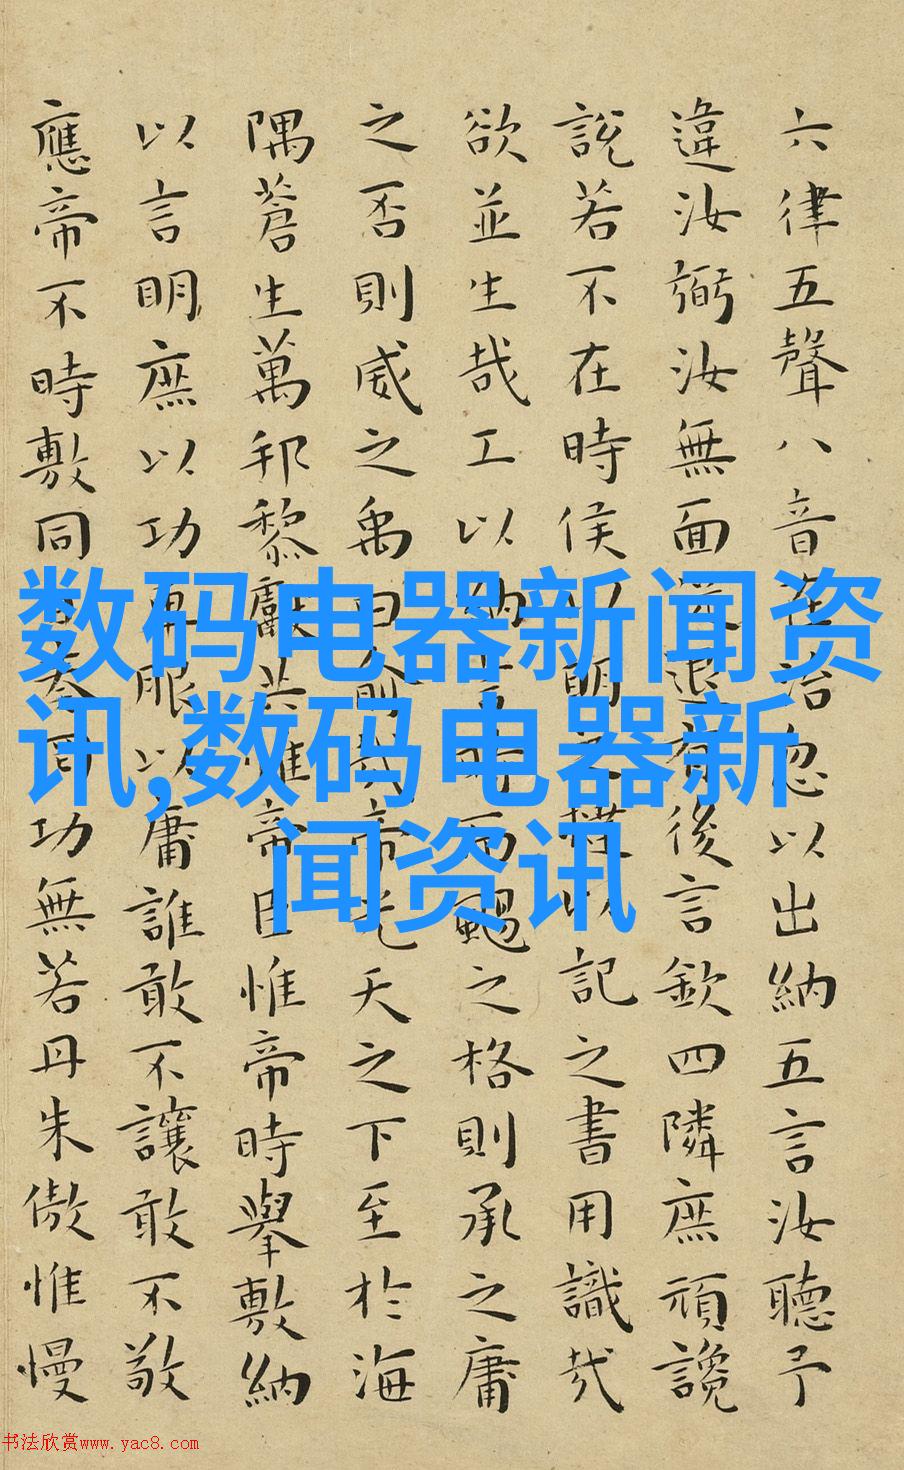 六律五聲八音在治忽以出納五言汝聽予
違汝弼汝無面從退有後言欽四隣庶頑讒
說若不在時侯以明之撻以記之書用識哉
欲並生哉工以納言時而颺之格則承之庸
之否則威之禹曰俞哉帝光天之下至於海
隅蒼生萬邦黎獻共惟帝臣惟帝時舉敷納
以言明庶以功車服以庸誰敢不讓敢不敬
應帝不時敷同日奏罔功無若丹朱傲惟慢
数码电器新闻资
讯,数码电器新
闻资讯
书法欣赏www.yac8.com